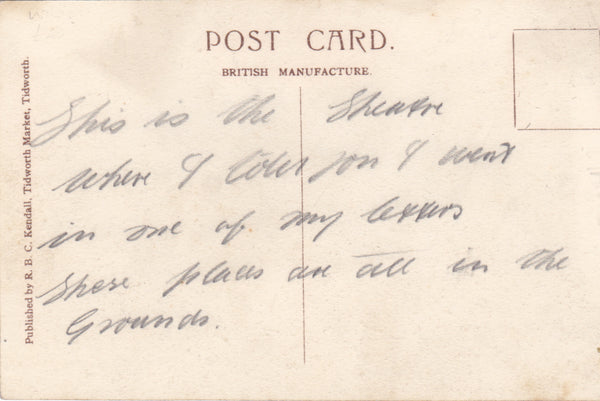 POST CARD.
BRITISH MANUFACTURE.
Published by R. B. C. Kendall, Tidworth Market, Tidworth.
This is the Theatre
where I told you I went
in one of my letters
These places are all in the
Grounds.